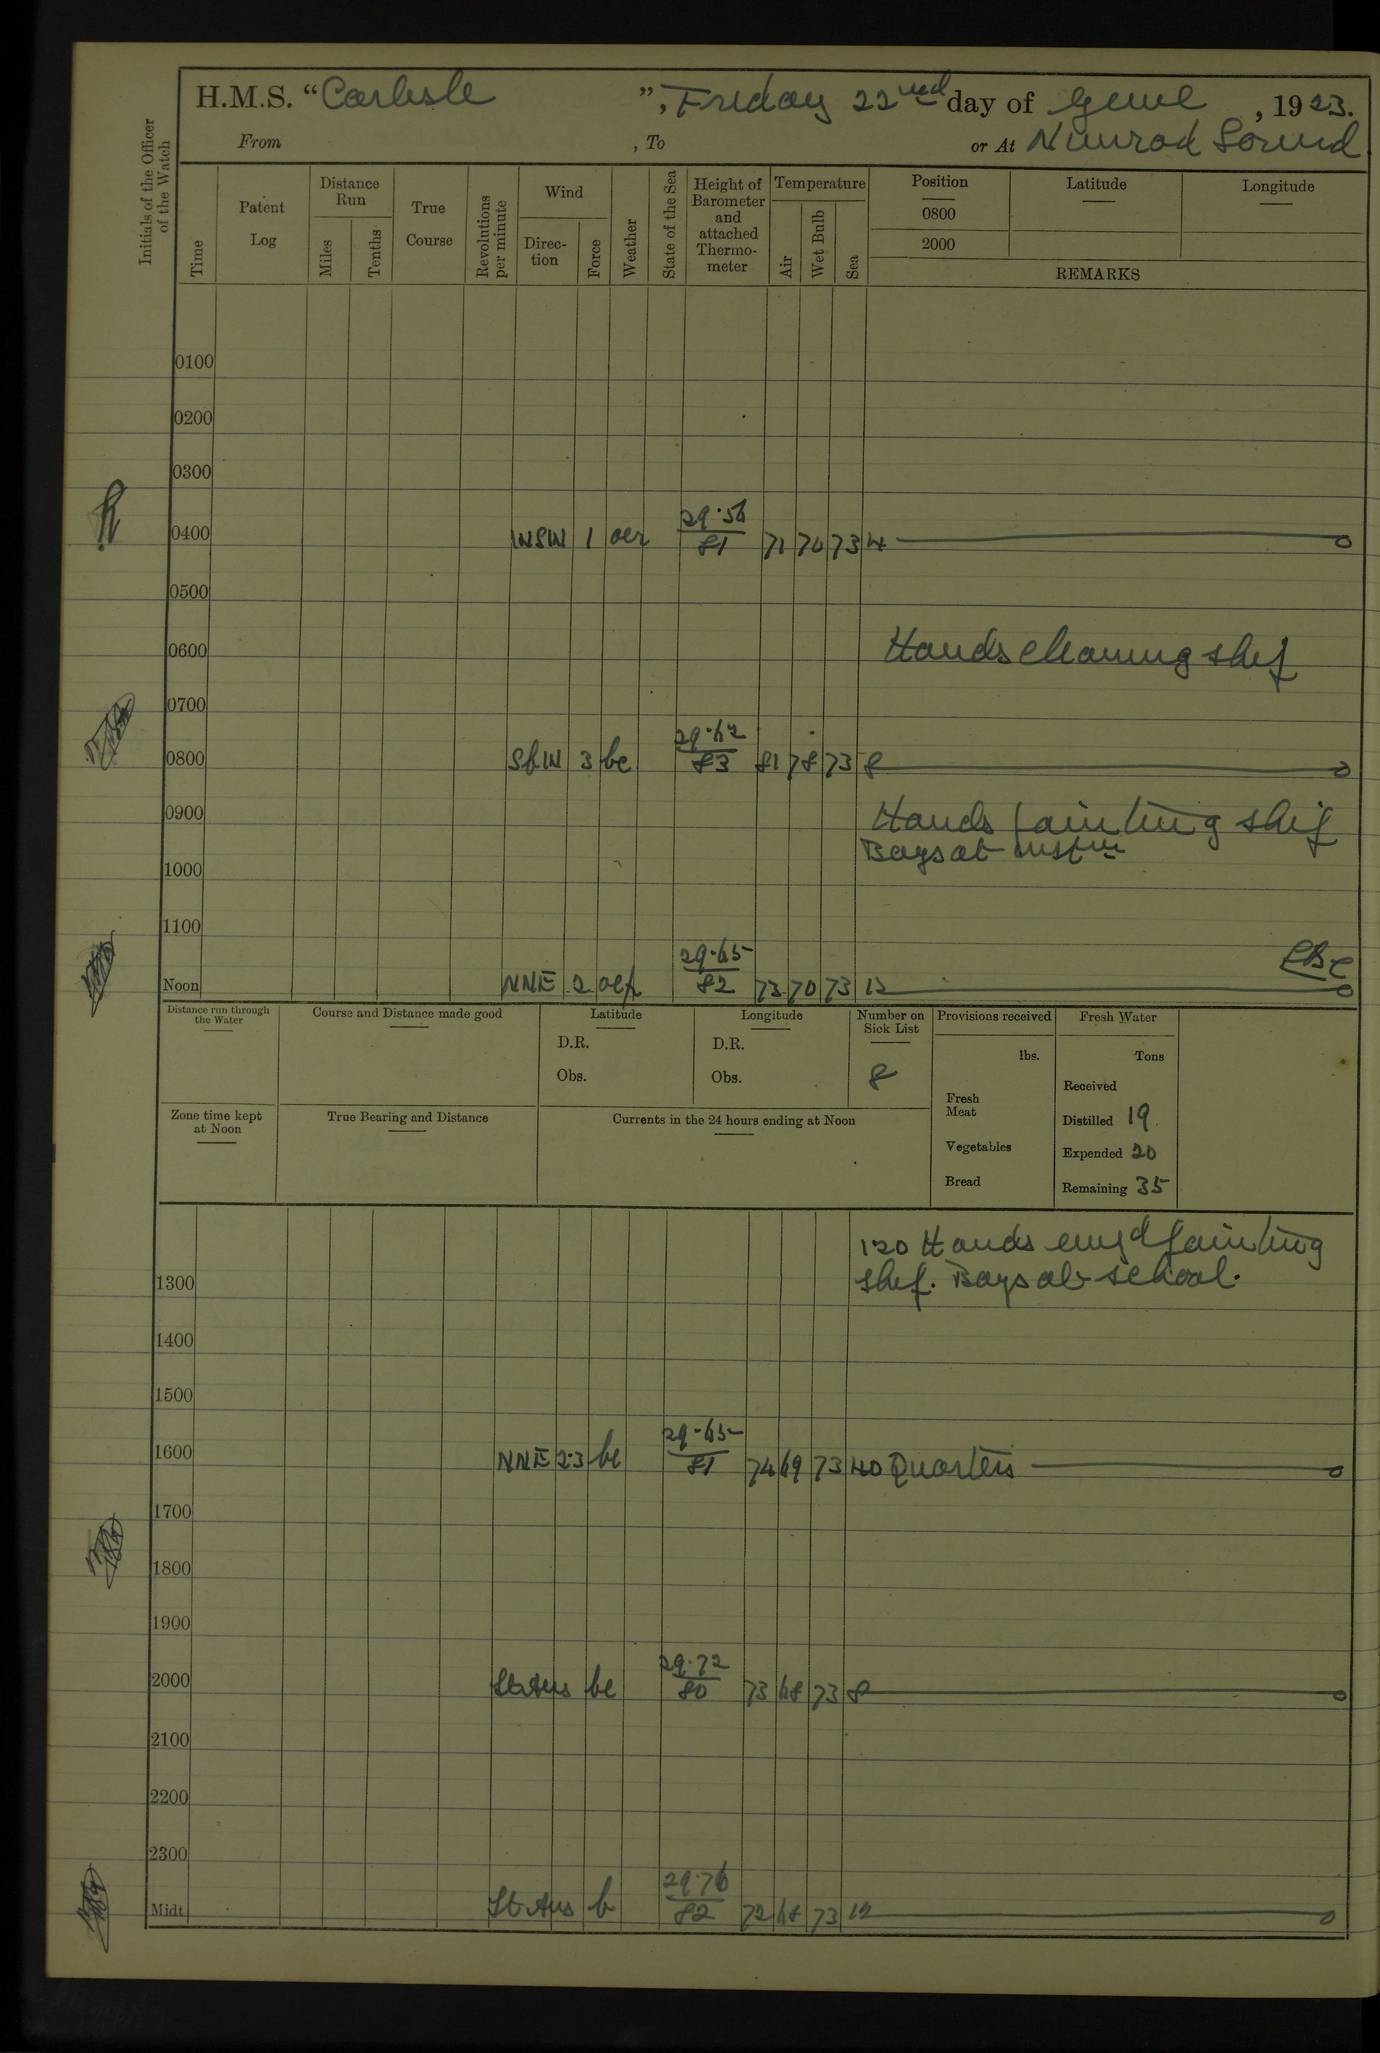 H.M.S. "Carlisle", Friday 22nd day of June, 1923.
From , To or At Nimrod Sound
Initials of the Officer of the Watch
Time
Patent Log
Distance Run
Miles
Tenths
True Course
Revolutions per minute
Wind
Direc-tion
Force
Weather
State of the Sea
Height of Barometer and attached Thermo-meter
Temperature
Air
Wet Bulb
Sea
Position
0800
2000
Latitude
Longitude
REMARKS
0100
0200
0300
0400 WSW 1 oer 29.56 81 71 70 73 4
0500
0600 Hands cleaning ship
0700
0800 SbW 3 bc 29.62 83 81 78 73 8
0900 Hands painting ship
Boys at instn
1000
1100
Noon NNE 2 29.65 82 73 70 73 12
Distance run through the Water
Course and Distance made good
Latitude
D.R.
Obs.
Longitude
D.R.
Obs.
Number on Sick List
8
Provisions received
lbs.
Fresh Meat
Vegetables
Bread
Fresh Water
Tons
Received
Distilled 19
Expended 20
Remaining 35
Zone time kept at Noon
True Bearing and Distance
Currents in the 24 hours ending at Noon
1.20 Hands empd painting
ship. Boys at school.
1300
1400
1500
1600 NNE 2.3 bc 29.65 81 74 69 73 4.0 Quarters
1700
1800
1900
2000 Lt Airs bc 29.72 80 73 68 73 8
2100
2200
2300
Midt. Lt Airs b 29.76 82 72 68 73 12